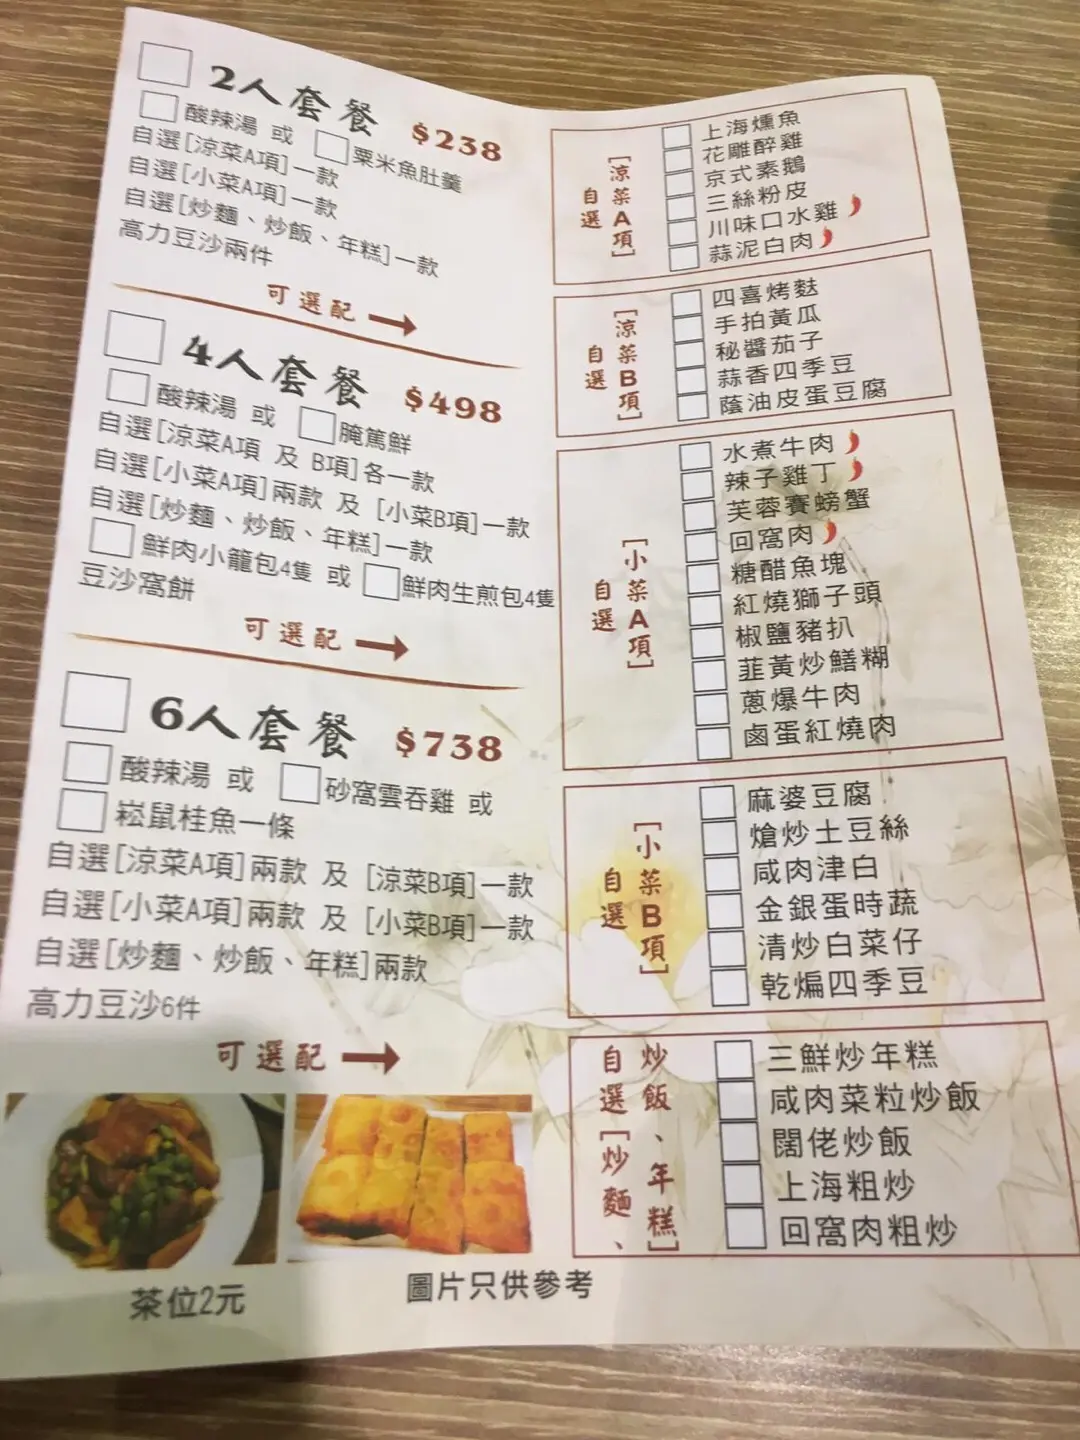 2人套餐 $238
酸辣湯 或 粟米魚肚羹
自選[涼菜A項]一款
自選[小菜A項]一款
自選[炒麵、炒飯、年糕]一款
高力豆沙兩件
可選配→
4人套餐 $498
酸辣湯 或 腌篤鮮
自選[涼菜A項 及 B項]各一款
自選[小菜A項]兩款 及 [小菜B項]一款
自選[炒麵、炒飯、年糕]一款
鮮肉小籠包4隻 或 鮮肉生煎包4隻
豆沙窩餅
可選配→
6人套餐 $738
酸辣湯 或 砂窩雲吞雞 或
崧鼠桂魚一條
自選[涼菜A項]兩款 及 [涼菜B項]一款
自選[小菜A項]兩款 及 [小菜B項]一款
自選[炒麵、炒飯、年糕]兩款
高力豆沙6件
可選配→
茶位2元
圖片只供參考
自選
[涼菜A項]
上海燻魚
花雕醉雞
京式素鵝
三絲粉皮
川味口水雞
蒜泥白肉
自選
[涼菜B項]
四喜烤麩
手拍黃瓜
秘醬茄子
蒜香四季豆
蔭油皮蛋豆腐
自選
[小菜A項]
水煮牛肉
辣子雞丁
芙蓉賽螃蟹
回窩肉
糖醋魚塊
紅燒獅子頭
椒鹽豬扒
韮黃炒鱔糊
蔥爆牛肉
鹵蛋紅燒肉
自選
[小菜B項]
麻婆豆腐
熗炒土豆絲
咸肉津白
金銀蛋時蔬
清炒白菜仔
乾煸四季豆
自選[炒麵、
炒飯、年糕]
三鮮炒年糕
咸肉菜粒炒飯
闊佬炒飯
上海粗炒
回窩肉粗炒